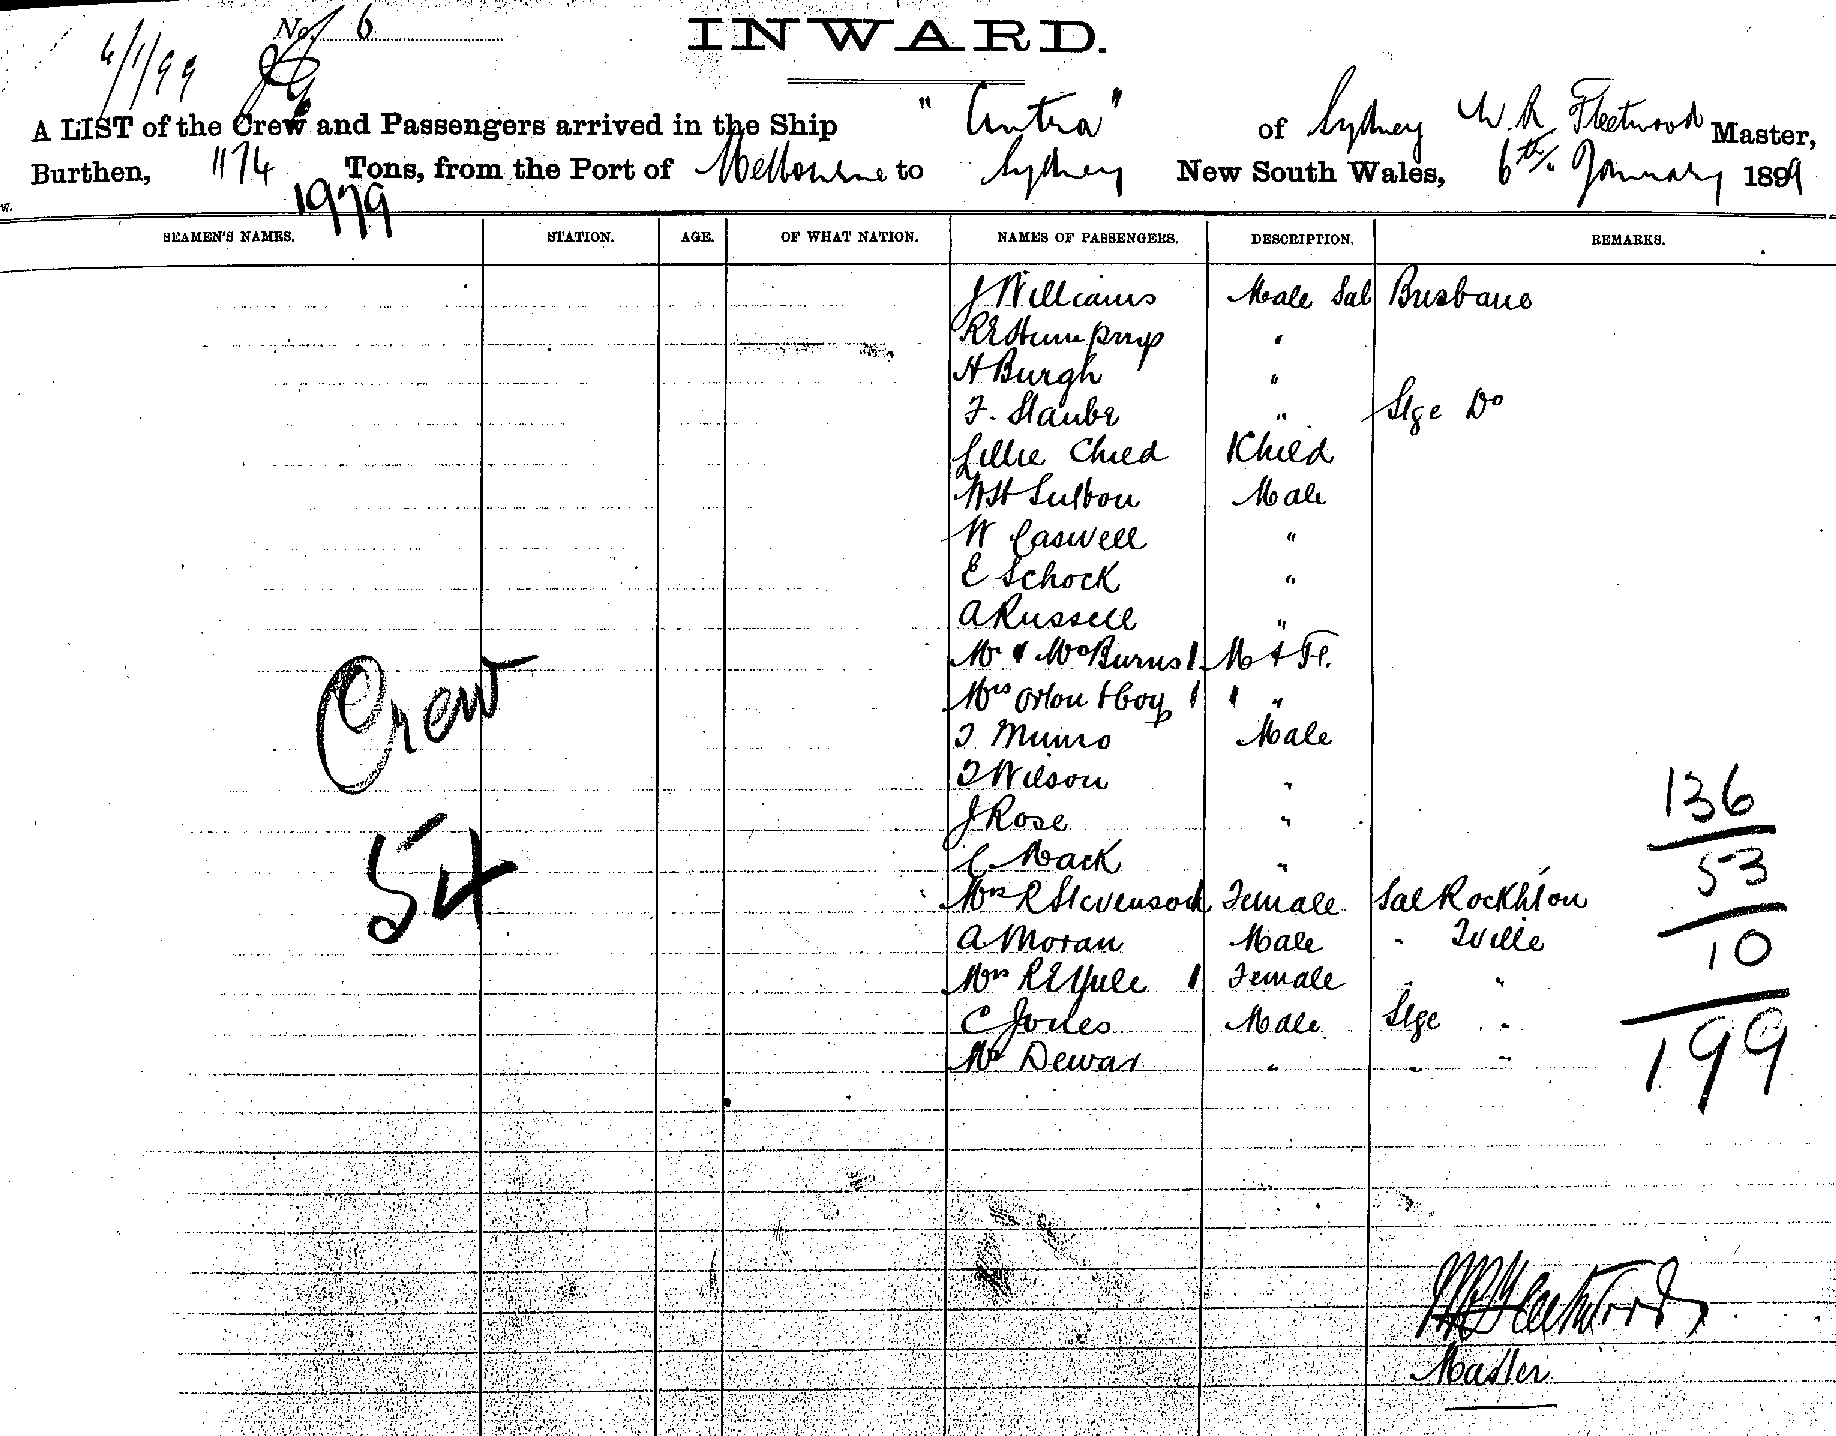 No. 6
INWARD.
6/1/99
A LIST of the Crew and Passengers arrived in the Ship "Cintra" of Sydney W. R. Fleetwood Master,
Burthen, 1174 Tons, from the Port of Melbourne to Sydney New South Wales, 6th January 1899
1979
SEAMEN'S NAMES. STATION. AGE. OF WHAT NATION. NAMES OF PASSENGERS. DESCRIPTION. REMARKS.
J Williams Male Sal Brisbane
R E Humphrys "
H Burgh "
F. Staube " Stge Do
Lillie Child Child
W H Sutton Male
W Caswell "
E Schock "
A Russell "
Mr & Mrs Burns 1 M & F.
Mrs Orton & boy 1 1 "
T Munro Male
T Wilson "
J Rose "
C Mack "
Mrs R Stevenson Female Sal Rockhton
A Moran Male " Tville
Mrs R E Yule 1 Female " "
C Jones Male Stge "
Mr Dewar " " "
Crew
54
136
53
10
199
W R Fleetwood
Master